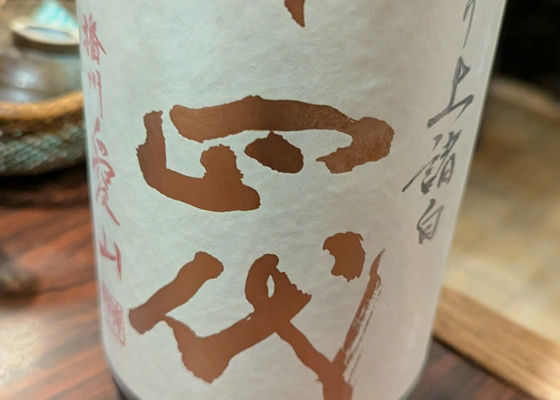 上諸白
四代
播州愛山